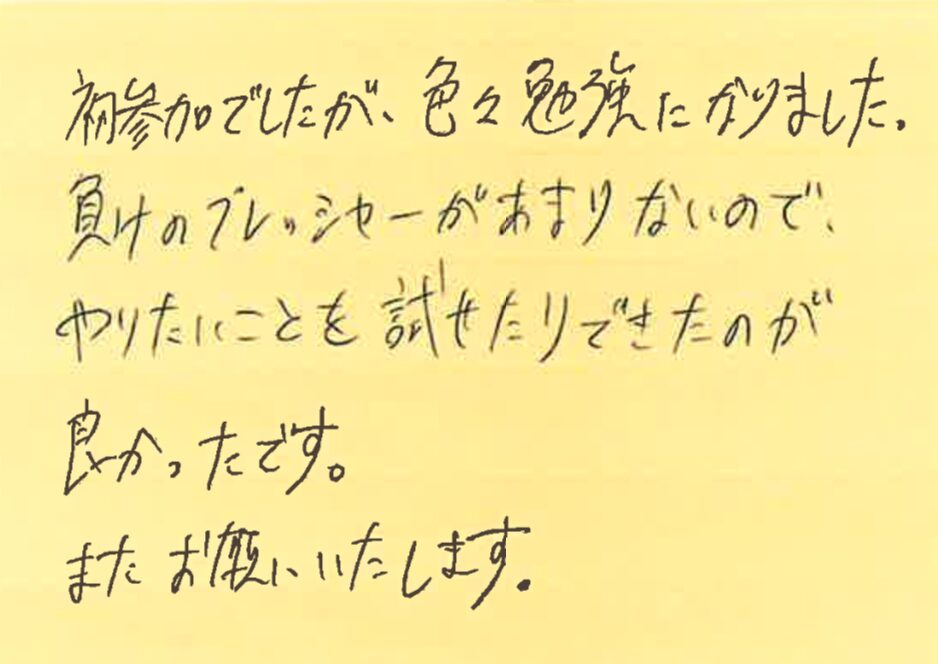 初参加でしたが、色々勉強になりました。
負けのプレッシャーがあまりないので、
やりたいことを試せたりできたのが
良かったです。
またお願いいたします。